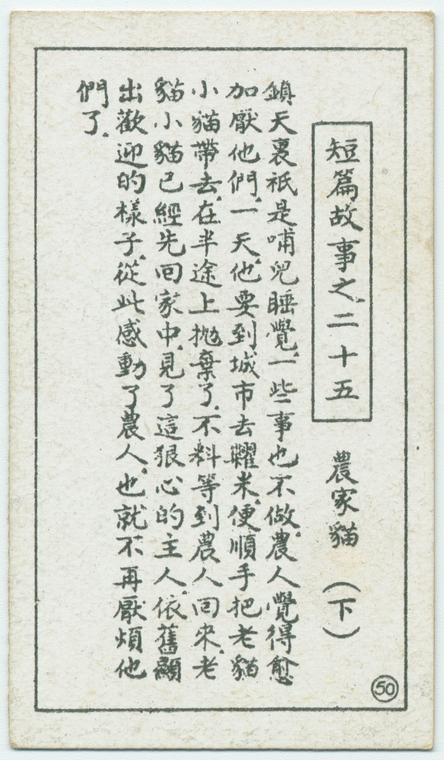 短篇故事之二十五　農家貓（下）
鎮天裏祇是哺兒睡覺.一些事也不做.農人覺得愈
加厭他們.一天.他要到城市去糶米.便順手把老貓
小貓帶去.在半途上拋棄了.不料等到農人回來.老
貓小貓已經先回家中.見了這狠心的主人.依舊顯
出歡迎的樣子.從此感動了農人.也就不再厭煩他
們了.
50